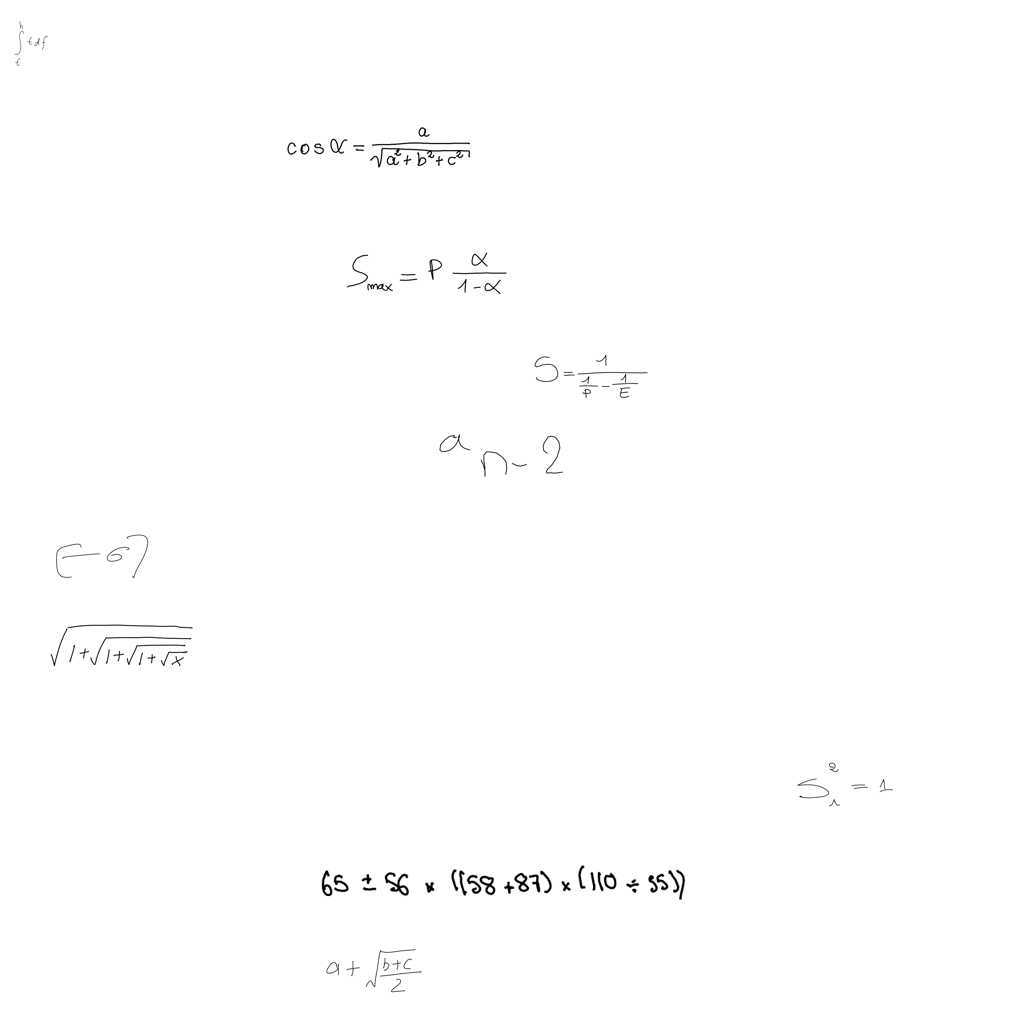 \int_{t}^{h} t df
\cos \alpha = \frac{a}{\sqrt{a^2+b^2+c^2}}
S_{max} = P \frac{\alpha}{1-\alpha}
S = \frac{1}{\frac{1}{P}-\frac{1}{E}}
a_{n-2}
[-6]
\sqrt{1+\sqrt{1+\sqrt{1+\sqrt{x}}}}
S_i^2 = 1
65 ± 56 × ((58+87) × (110 ÷ 55))
a + \sqrt{\frac{b+c}{2}}